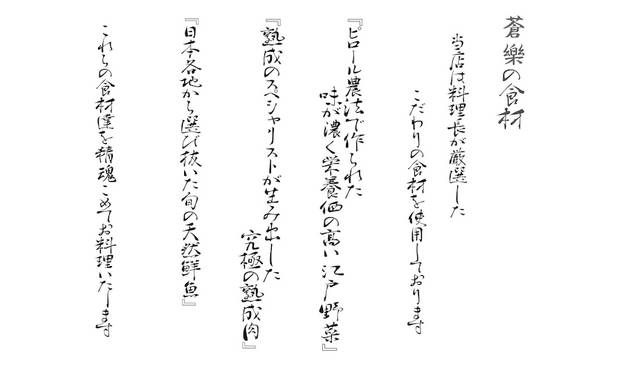 蒼樂の食材
当店は料理長が厳選した
こだわりの食材を使用しております
『ピロール農法で作られた
味が濃く栄養価の高い江戸野菜』
『熟成のスペシャリストが生み出した
究極の熟成肉』
『日本各地から選び抜いた旬の天然鮮魚』
これらの食材達を精魂こめてお料理いたします